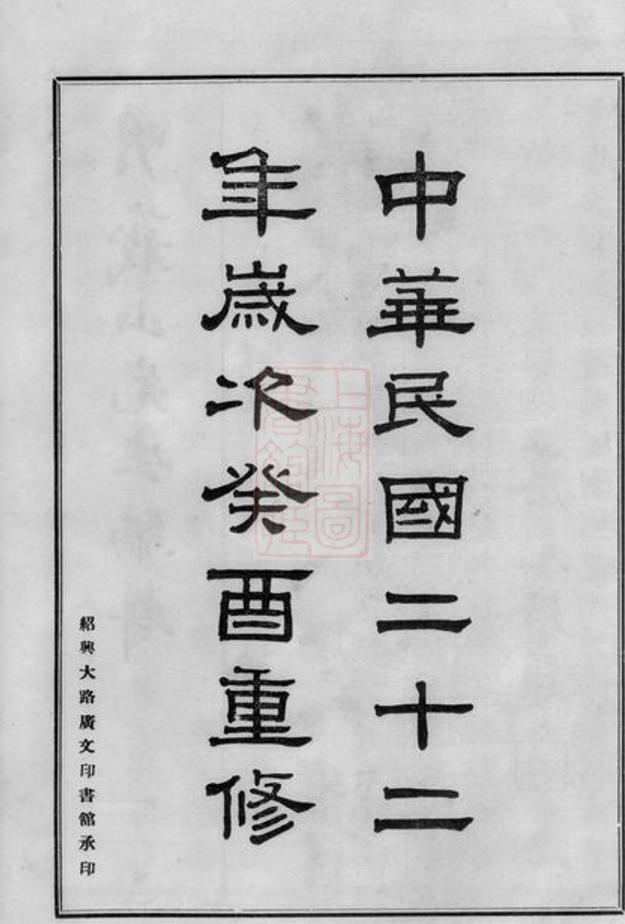 中華民國二十二
年歲次癸酉重修
紹興大路廣文印書館承印